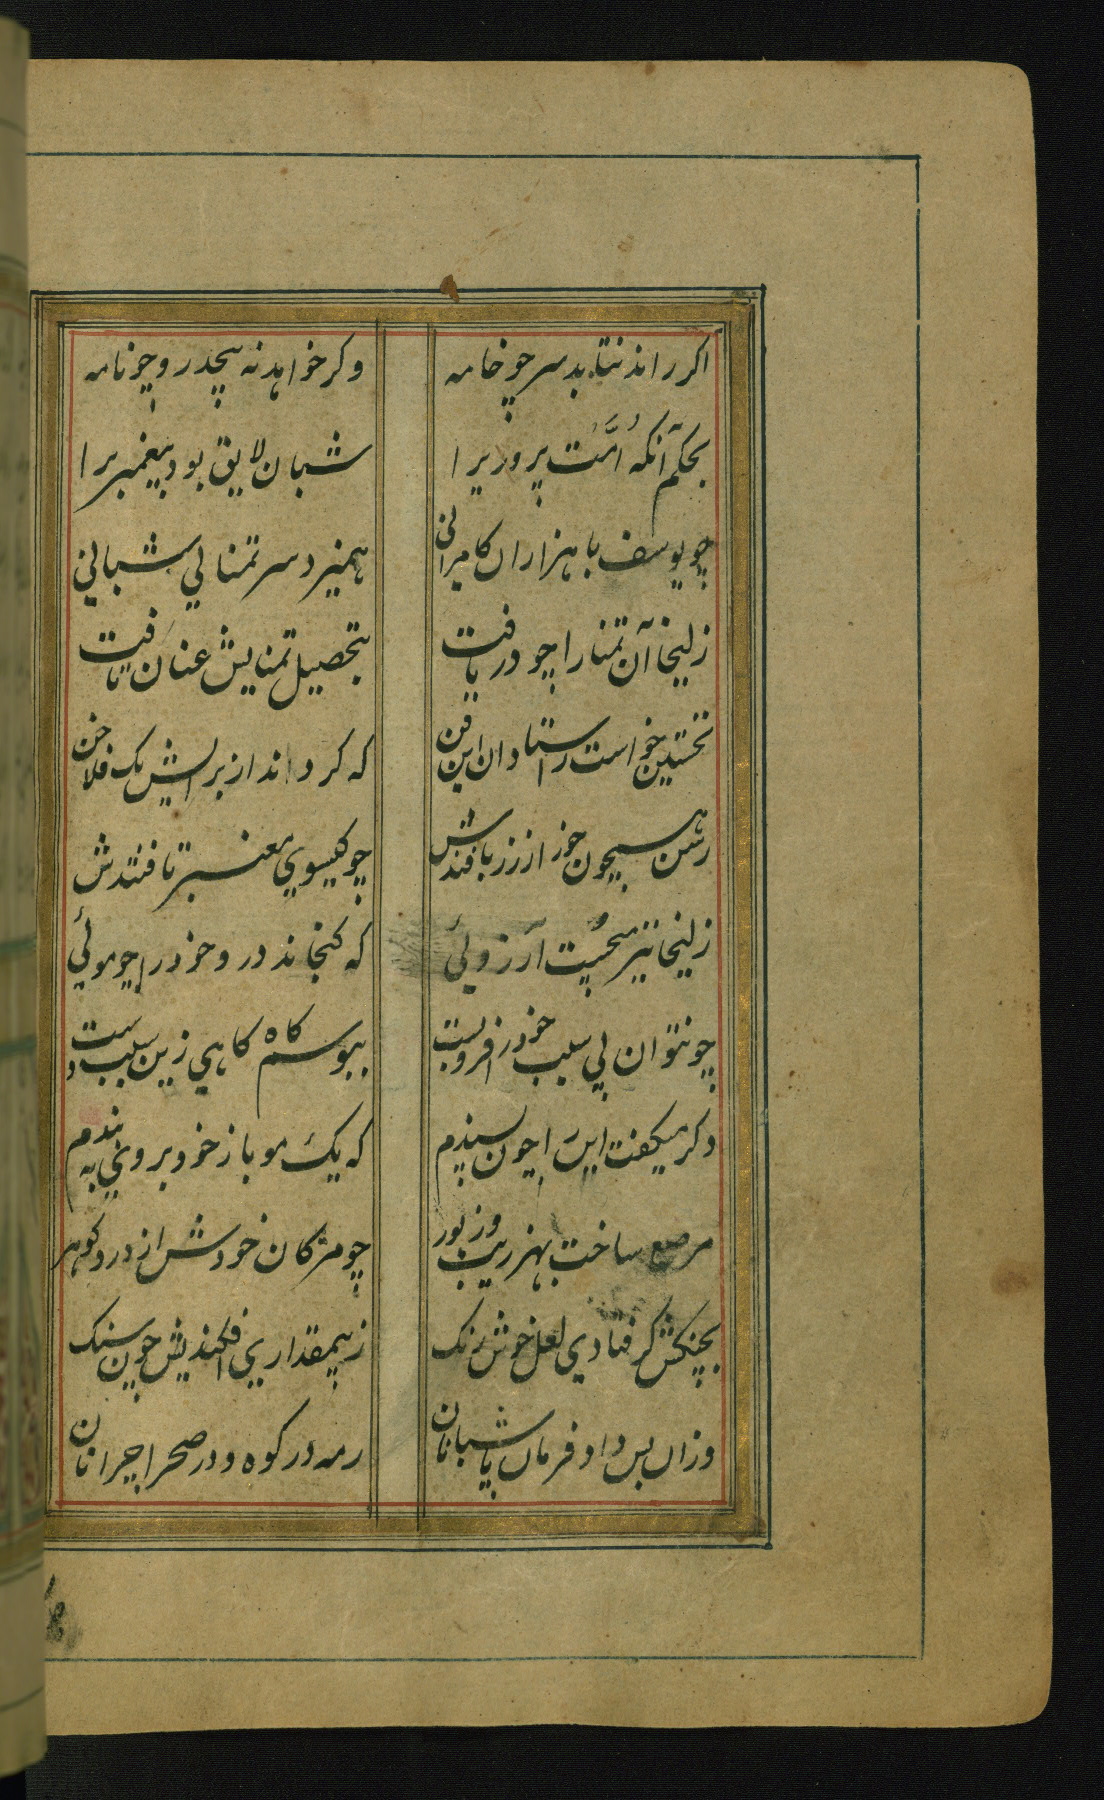 اگر راند نتابد سر چو خامه
وگر خواهد نه پیچد رو چو نامه
بحکم آنکه اُمَّت پروریرا
شبان لایق بود پیغمبریرا
چو یوسف با هزاران کامرانی
همیزد سر تمنای شبانی
زلیخا آن تمنا را چو دریافت
بتحصیل تمنایش عنان تافت
نخستین خواست ز استادان این فن
که کردند از برایش یک فلاخن
رسن همچون خور از زر بافتندش
چو گیسوی معنبر تافتندش
زلیخا نیز میجست آرزوئی
که گنجاند درو خود را چو موئی
چو نتوان بی سبب خود را فرو بست
ببوسم گاه گاهی زین سبب دست
دگر میگفت این را چون پسندم
که یک مو بار خود بر وی به بندم
مرصع ساخت بهر زیب و زیور
چو مژگان خودش از در و گوهر
بچنگش گر فتادی لعل خوش رنگ
ز بیمقداری افکندیش چون سنگ
وزان پس داد فرمان با شبانان
رمه در کوه و در صحرا چرانان